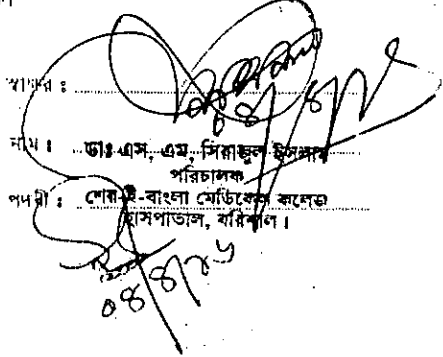 স্বাক্ষর ঃ
নাম ঃ ডাঃ এস, এম, সিরাজুল ইসলাম
পরিচালক
পদবী ঃ শের-ই-বাংলা মেডিকেল কলেজ
হাসপাতাল, বরিশাল।